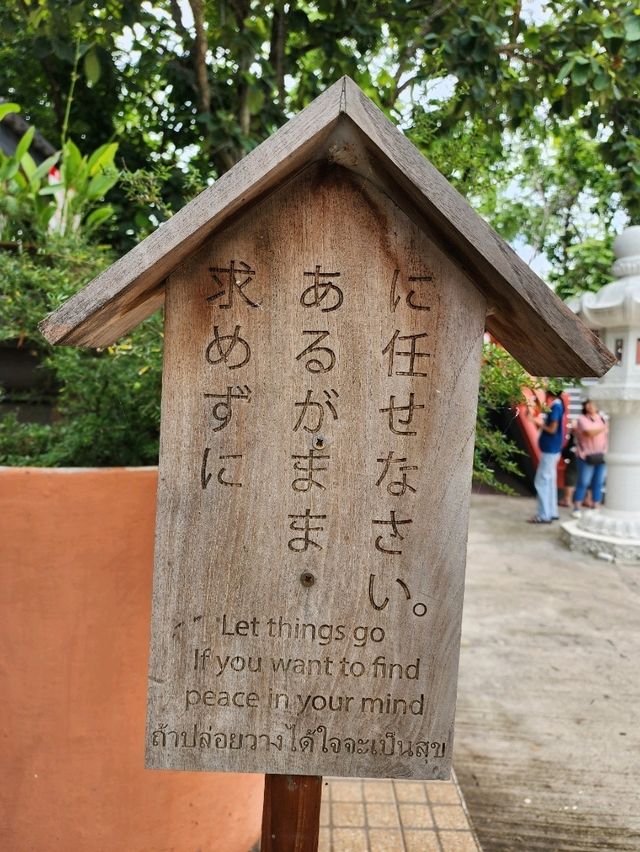 求めずに
あるがまま
に任せなさい。
Let things go
If you want to find
peace in your mind
ถ้าปล่อยวางได้ใจจะเป็นสุข